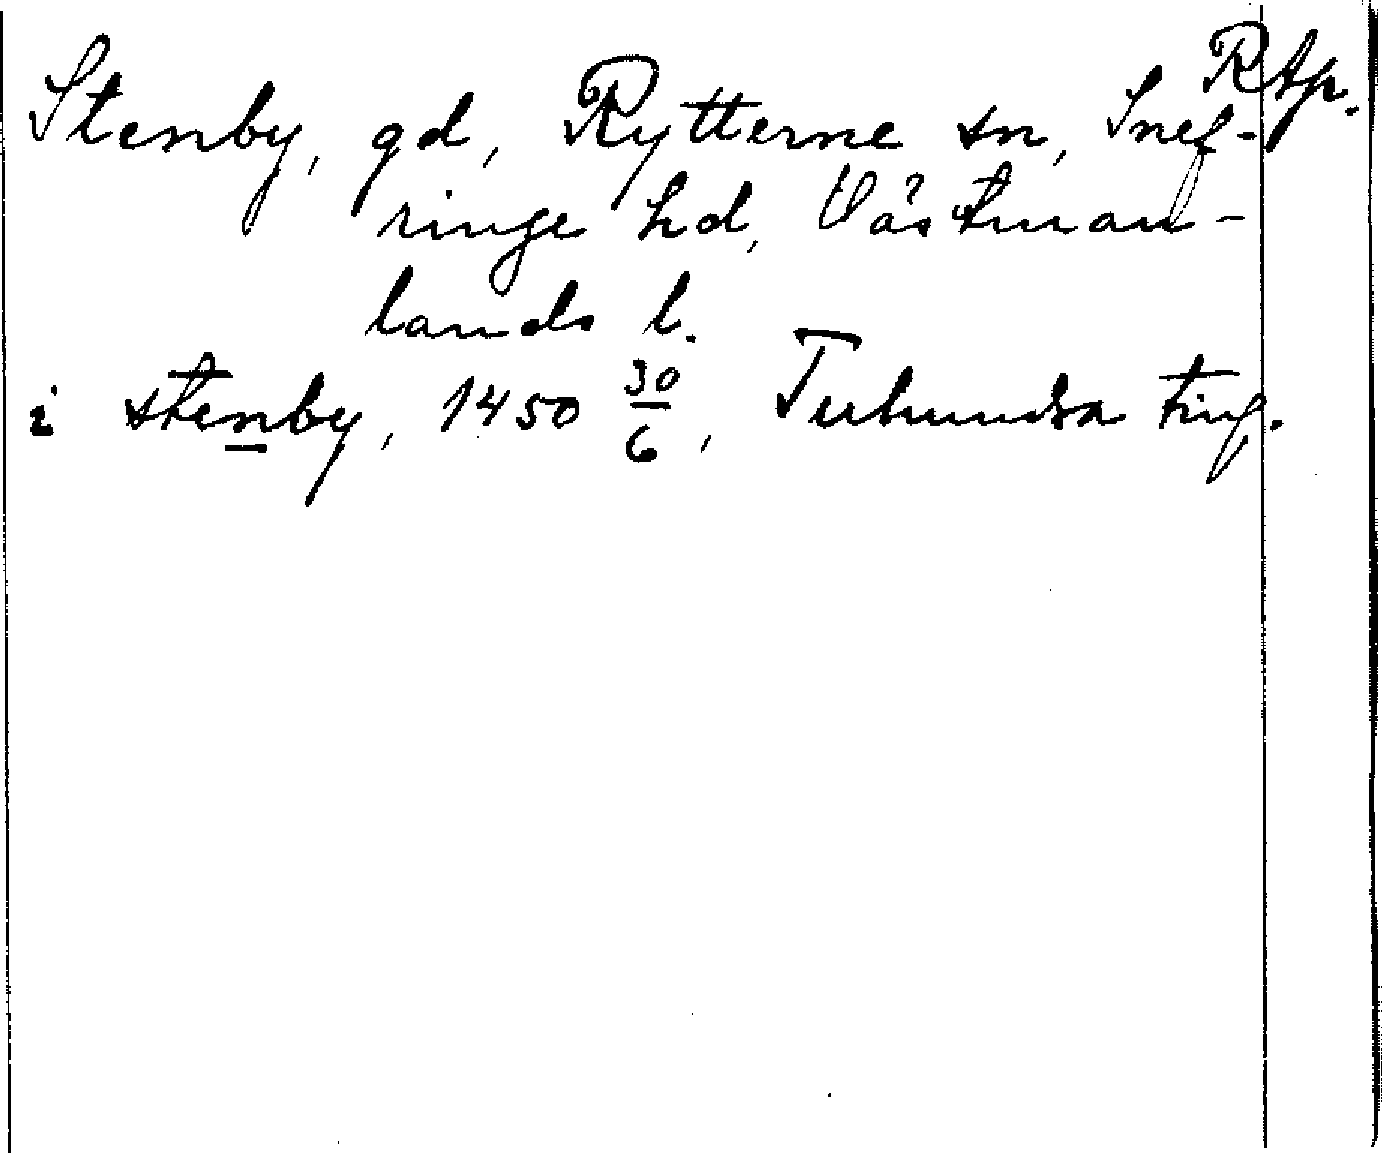 RAp.
Stenby, gd, Rytterne sn, Snef-
ringe hd, Västman-
lands l.
i stenby, 1450 30/6, Tuhundra ting.